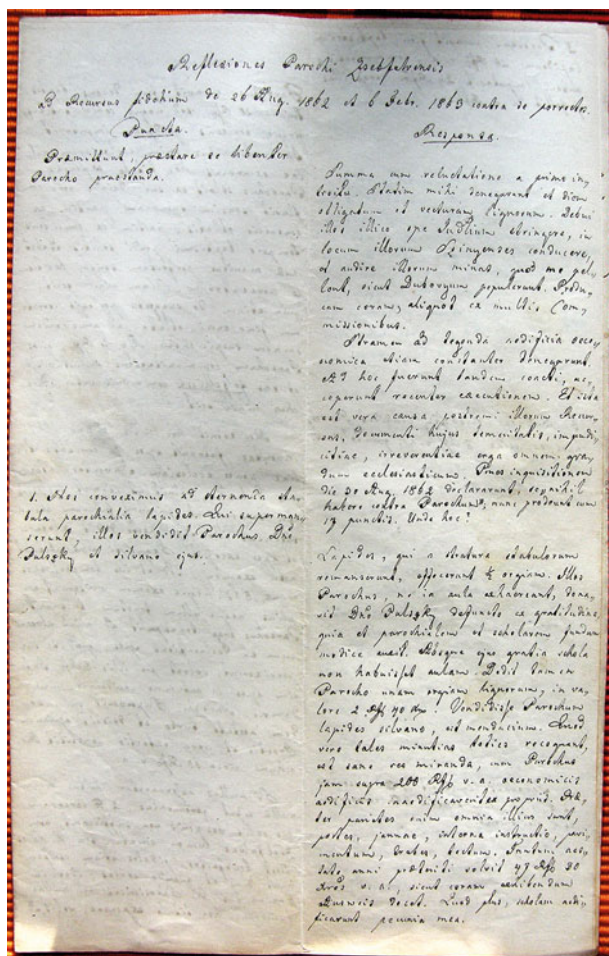 Reflexiones Parochi Zsebfalvensis
ad Recursus fidelium de 26 Aug. 1862 et 6 Febr. 1863 contra se porrectos.
Puncta.
Praemittunt, praestare se libenter
Parocho praestanda.
1. Nos conveximus ad sternenda sta-
bula parochialia lapides. Qui superman-
serunt, illos vendidit Parochus, Dno
Pulszky et silvano ejus.
Responsa.
Summa cum reluctatione a primo in-
troitu. Statim mihi denegarunt et diem
obligatum et vecturam lignorum. Debui
illos illico ope Judlium stringere, in
locum illorum conducere,
et audire illorum minas, quod me pel-
lent, sicut pepulerunt. Produ-
cam coram, aliquot ex multis Com-
missionibus.
Stramen ad tegenda aedificia oeco-
nomica etiam constanter denegarunt.
Ad hoc fuerunt tandem coacti, ac-
ceperunt recenter executionem. Et ista
est vera causa postremi illorum Recur-
sus, documenti hujus temeritatis, impudi-
citiae, irreverentiae erga omnem gra-
dum ecclesiasticum. Penes inquisitionem
die 30 Aug. 1862 declararunt, se nihil
habere contra Parochum; nunc prodeunt cum
17 punctis. Unde hoc?
Lapides, qui a stratura stabulorum
remanserunt, effecerunt ½ orgiam. Illos
Parochus, ne in aula haereant, dona-
vit Dno Pulszky defuncto ex gratitudine,
quia et parochialem et scholarem fundum
modice auxit. Absque ejus gratia schola
non habuisset aulam. Dedit tamen
Parocho unam orgiam lignorum, in va-
lore 2 Rf 40 xr. Vendidisse Parochum
lapides silvano, est mendacium. Quod
vero tales minutias toties recoquant,
est sane res miranda, cum Parochus
jam supra 200 Rf v. a. oeconomicis
aedificiis inaedificaverit ex propriis. Prae-
ter parietes enim omnia illius sunt,
postes, januae, interna instructio, pavi-
mentum, trabes, tectum.
anni praeteriti solvit 47 Rf 30
v. a., sicut coram exhibendum
Ausweis docet. Quod plus, scholam aedi-
ficarunt pecunia mea.